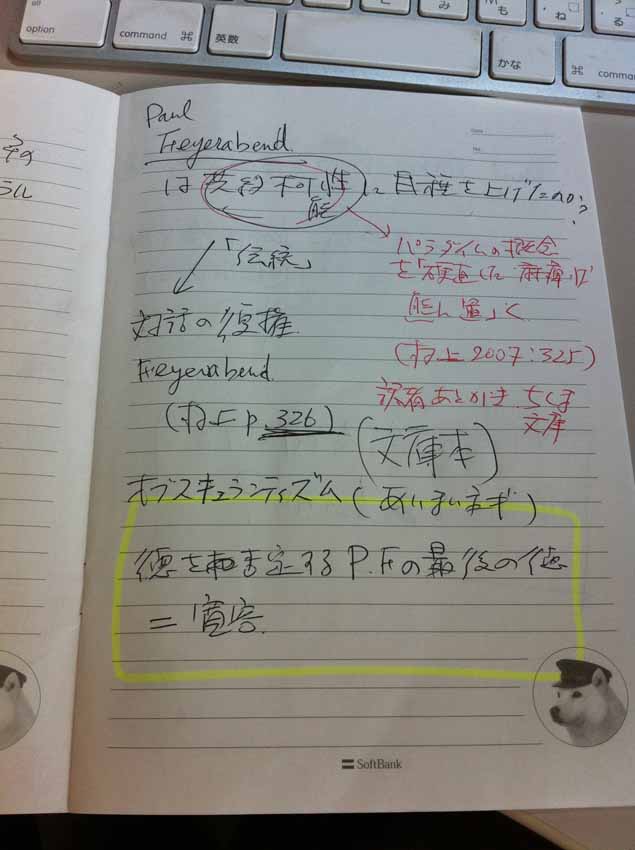 option
command ⌘
英数
かな
command
み
も
ね
る
Paul
Feyerabend
は共約不可能性に目種を上げたのか?
「伝統」
対話の復権
Feyerabend
(村上 p.326)
(文庫本)
パラダイムの概念
を「硬直した麻痺状
態に置」く
(村上 2007:325)
訳者あとがき ちくま
文庫
オブスキュランティズム(あいまいさ)
徳を否定する P.Fの最後の徳
=寛容
SoftBank